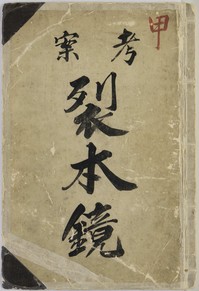 甲
考案
裂本鏡